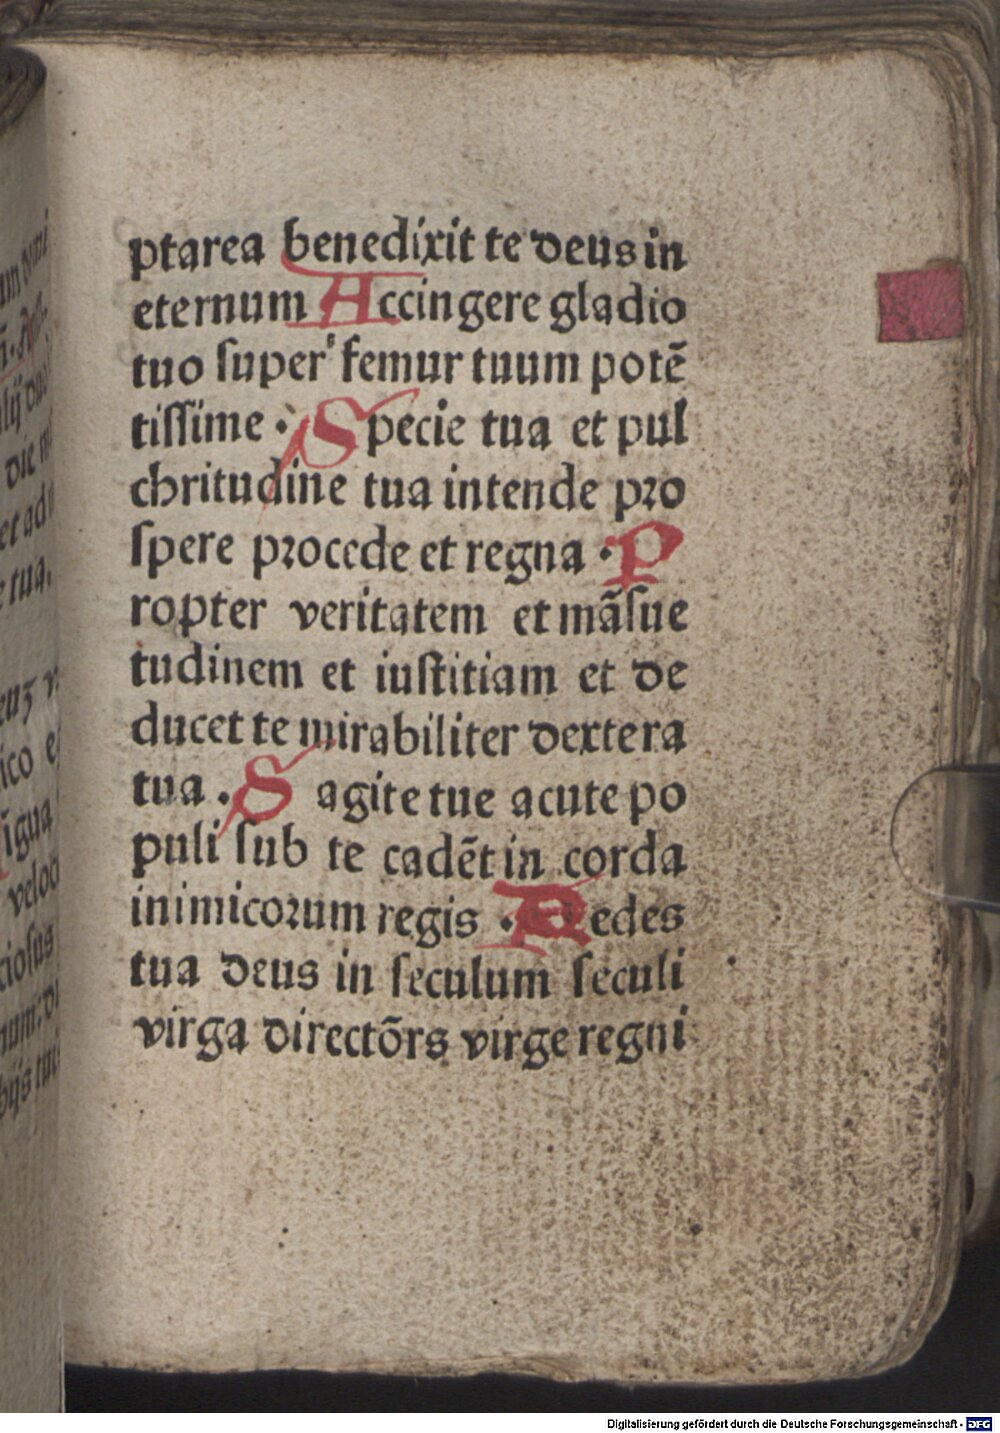 ptarea benedixit te deus in
eternum Accingere gladio
tuo super' femur tuum potē
tissime · Specie tua et pul
chritudine tua intende pro
spere procede et regna · P
ropter veritatem et māsue
tudinem et iustitiam et de
ducet te mirabiliter dextera
tua . Sagite tue acute po
puli sub te cadēt in corda
inimicorum regis · Sedes
tua deus in seculum seculi
virga directōrs virge regni
Digitalisierung gefördert durch die Deutsche Forschungsgemeinschaft - DFG